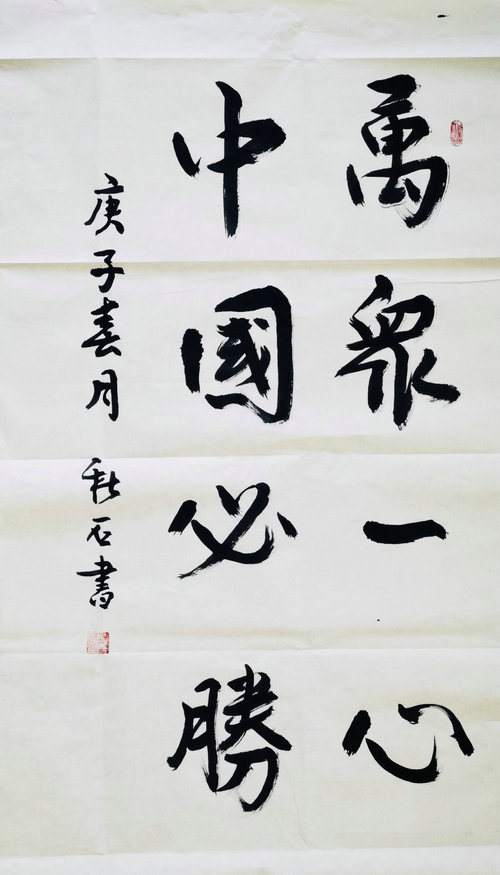 萬眾一心
中國必勝
庚子春月 秋石書